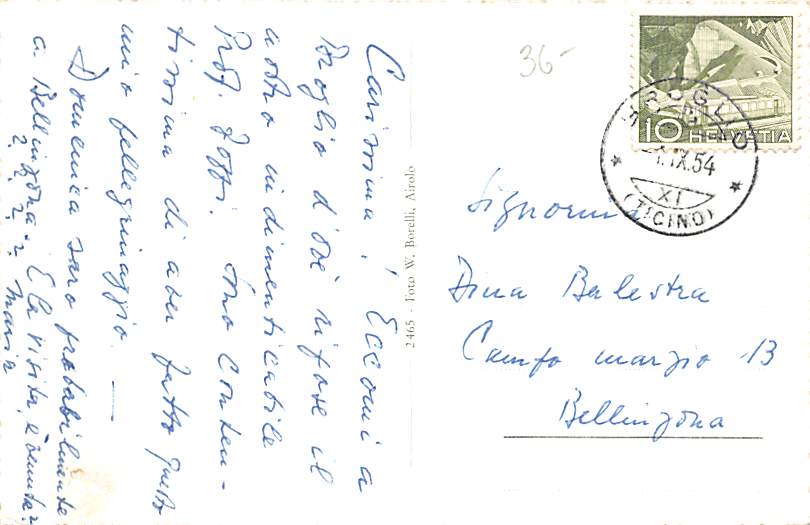 Carissima, Eccomi a
Broglio d'ove riposa il
nostro indimenticabile
Prof. Zoppi. Sono conten-
tissima di aver fatto questo
mio pellegrinaggio. —
Domenica sarò probabilmente
a Bellinzona.
E la visita, è venuta?
Maria
2465 - Foto W. Borelli, Airolo
36-
10 HELVETIA
BROGLIO
IX.54
XI
(TICINO)
Signorina
Dina Balestra
Campo marzio 13
Bellinzona